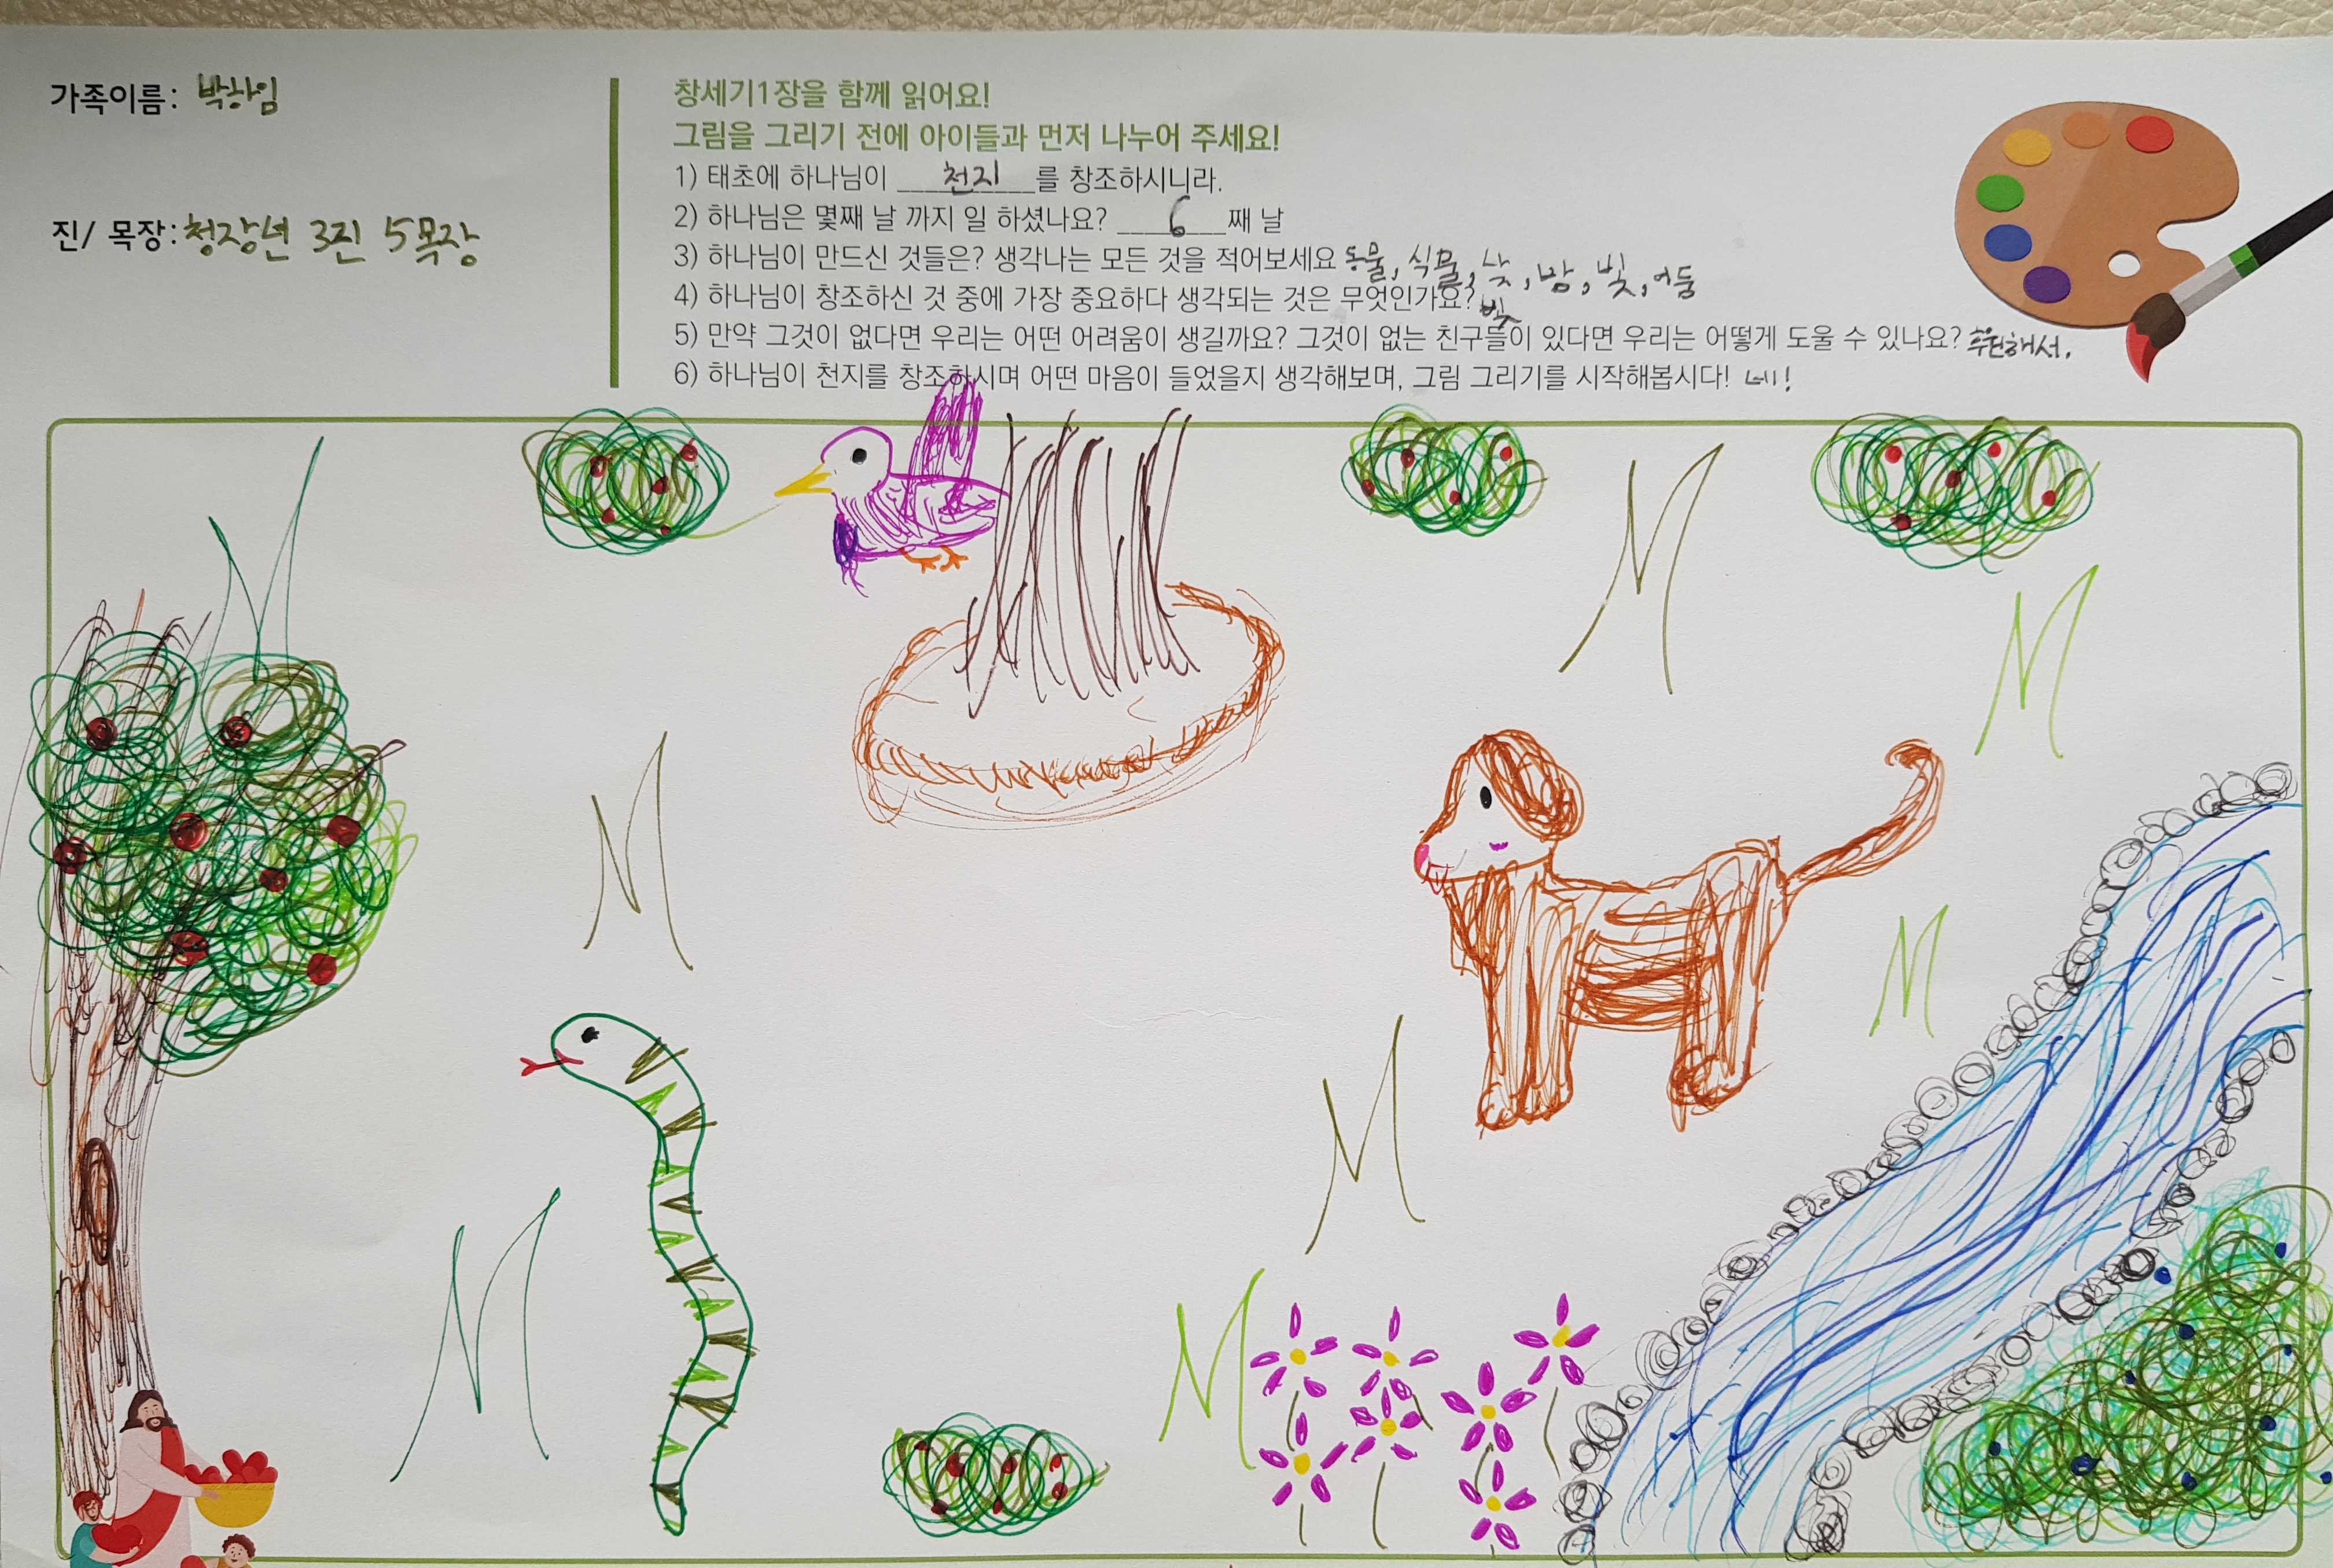 가족이름: 박하임
진/ 목장: 청장년 3진 5목장
창세기1장을 함께 읽어요!
그림을 그리기 전에 아이들과 먼저 나누어 주세요!
1) 태초에 하나님이 천지를 창조하시니라.
2) 하나님은 몇째 날 까지 일 하셨나요? 6째 날
3) 하나님이 만드신 것들은? 생각나는 모든 것을 적어보세요 동물, 식물, 낮, 밤, 빛, 어둠
4) 하나님이 창조하신 것 중에 가장 중요하다 생각되는 것은 무엇인가요?
5) 만약 그것이 없다면 우리는 어떤 어려움이 생길까요? 그것이 없는 친구들이 있다면 우리는 어떻게 도울 수 있나요? 후원해서.
6) 하나님이 천지를 창조하시며 어떤 마음이 들었을지 생각해보며, 그림 그리기를 시작해봅시다! 네!